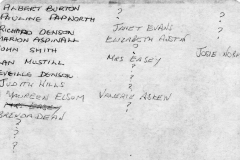 ALBERT BURTON ?
PAULINE PAPWORTH ?
?
RICHARD DENSON JANET EVANS
MARION ASPINALL ELIZABETH AUSTIN ?
JOHN SMITH ? JOSIE
IAN MUSTILL MRS EASEY
NEVILLE DENSON ?
JUDITH HILLS ?
MAUREEN ELSOM VALERIE AIKEN ?
MRS EASEY ?
BRENDA DEAN
?
?
?
?